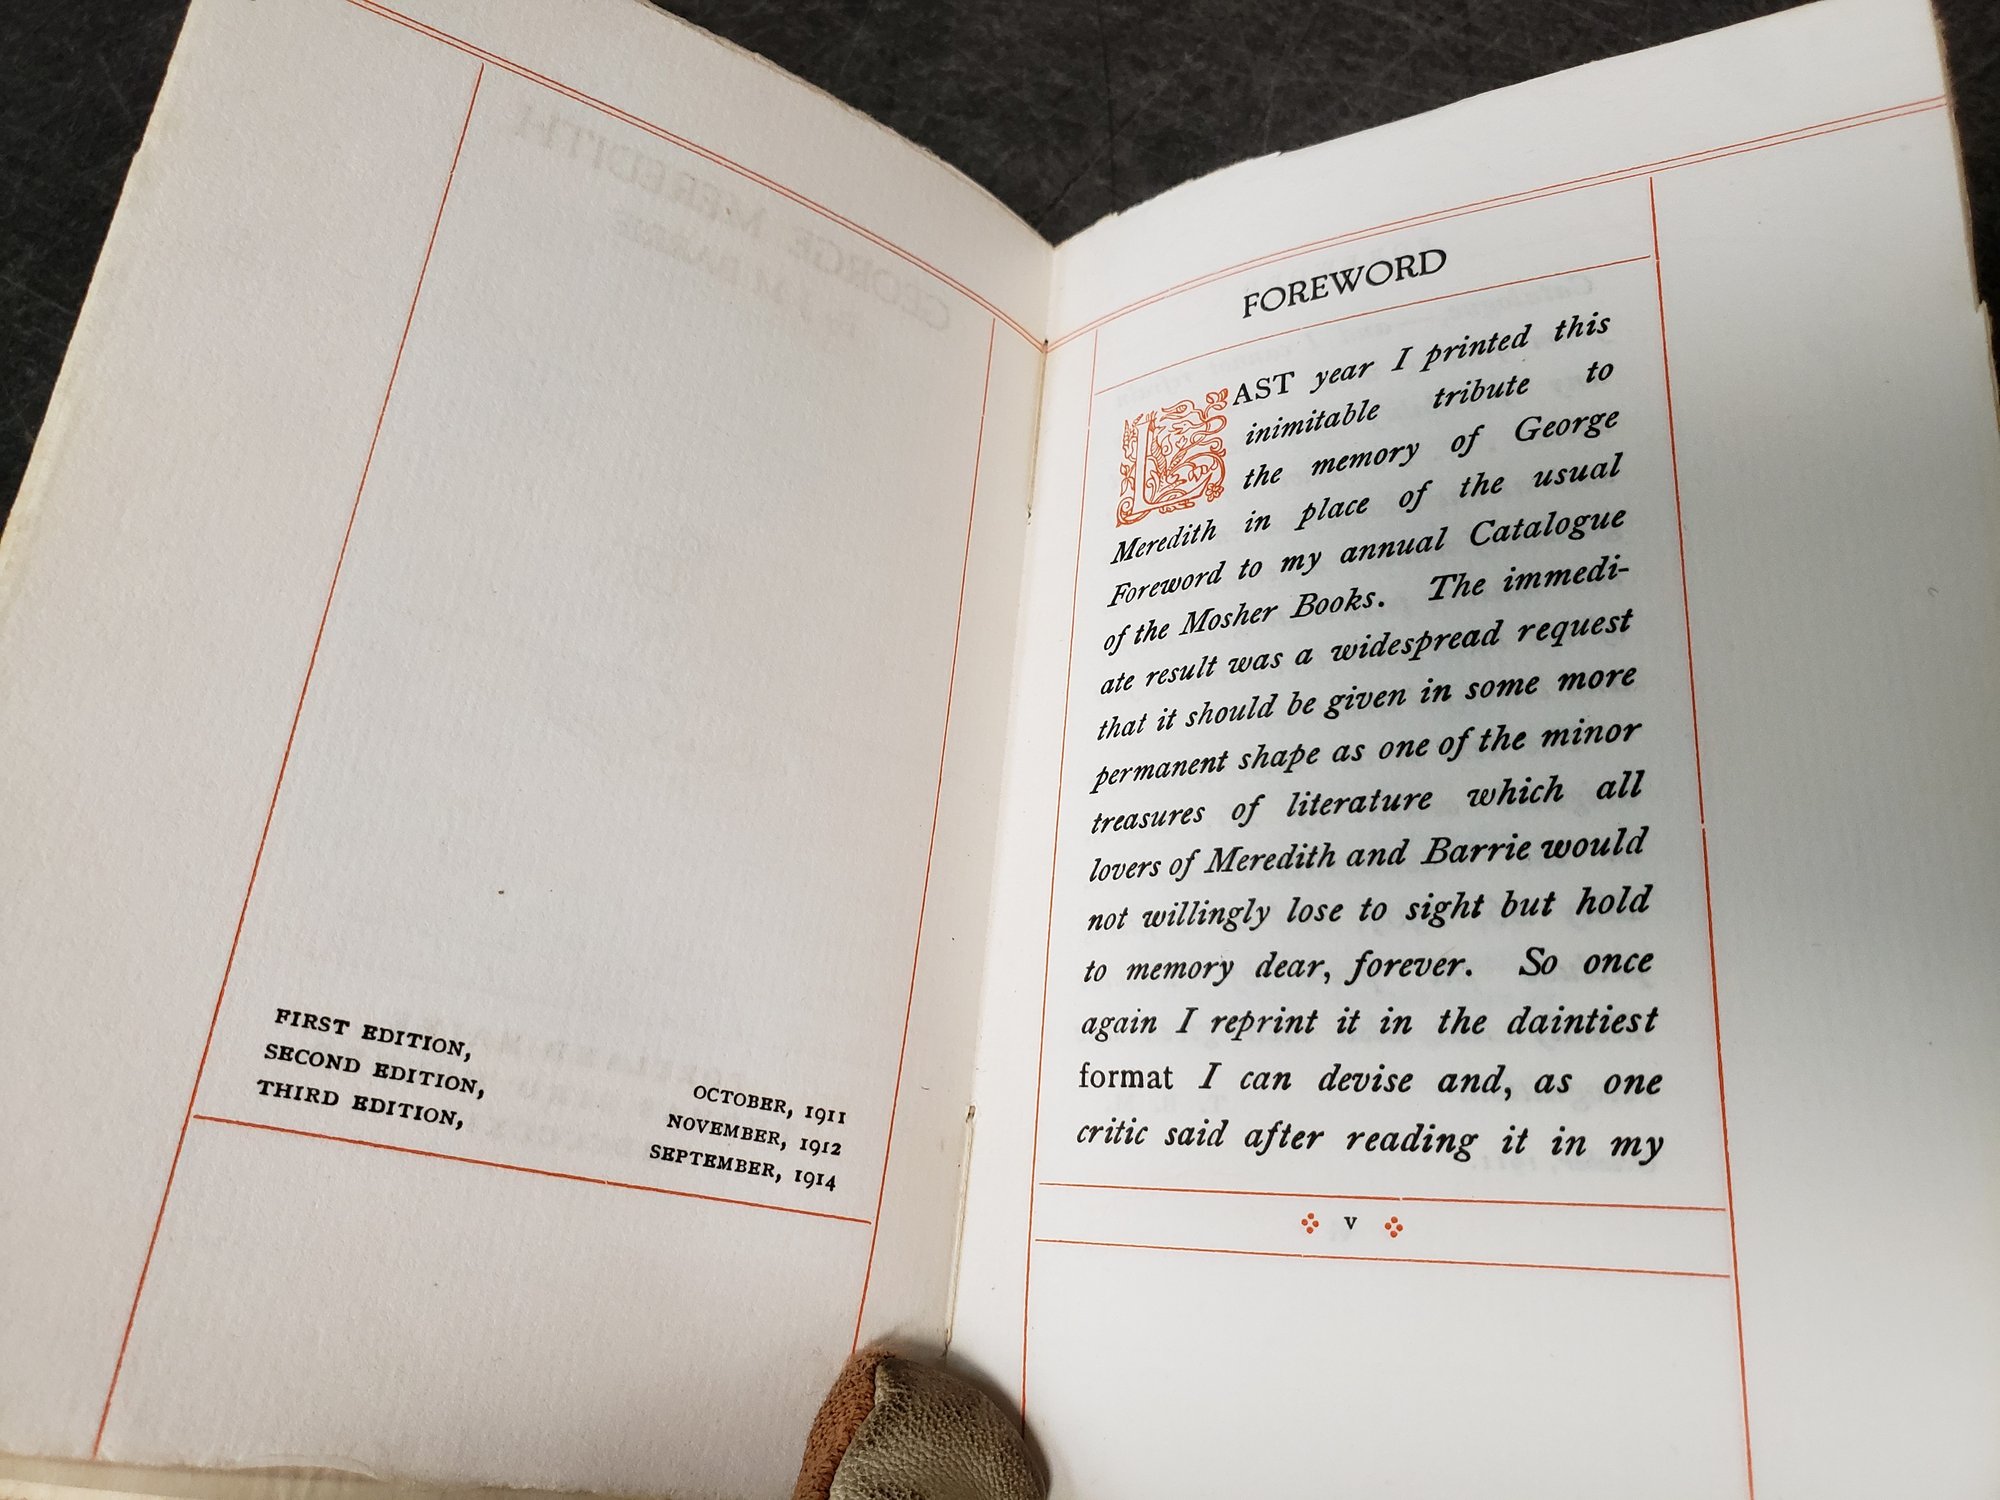 FIRST EDITION, OCTOBER, 1911
SECOND EDITION, NOVEMBER, 1912
THIRD EDITION, SEPTEMBER, 1914
FOREWORD
LAST year I printed this
inimitable tribute to
the memory of George
Meredith in place of the usual
Foreword to my annual Catalogue
of the Mosher Books. The immedi-
ate result was a widespread request
that it should be given in some more
permanent shape as one of the minor
treasures of literature which all
lovers of Meredith and Barrie would
not willingly lose to sight but hold
to memory dear, forever. So once
again I reprint it in the daintiest
format I can devise and, as one
critic said after reading it in my
v